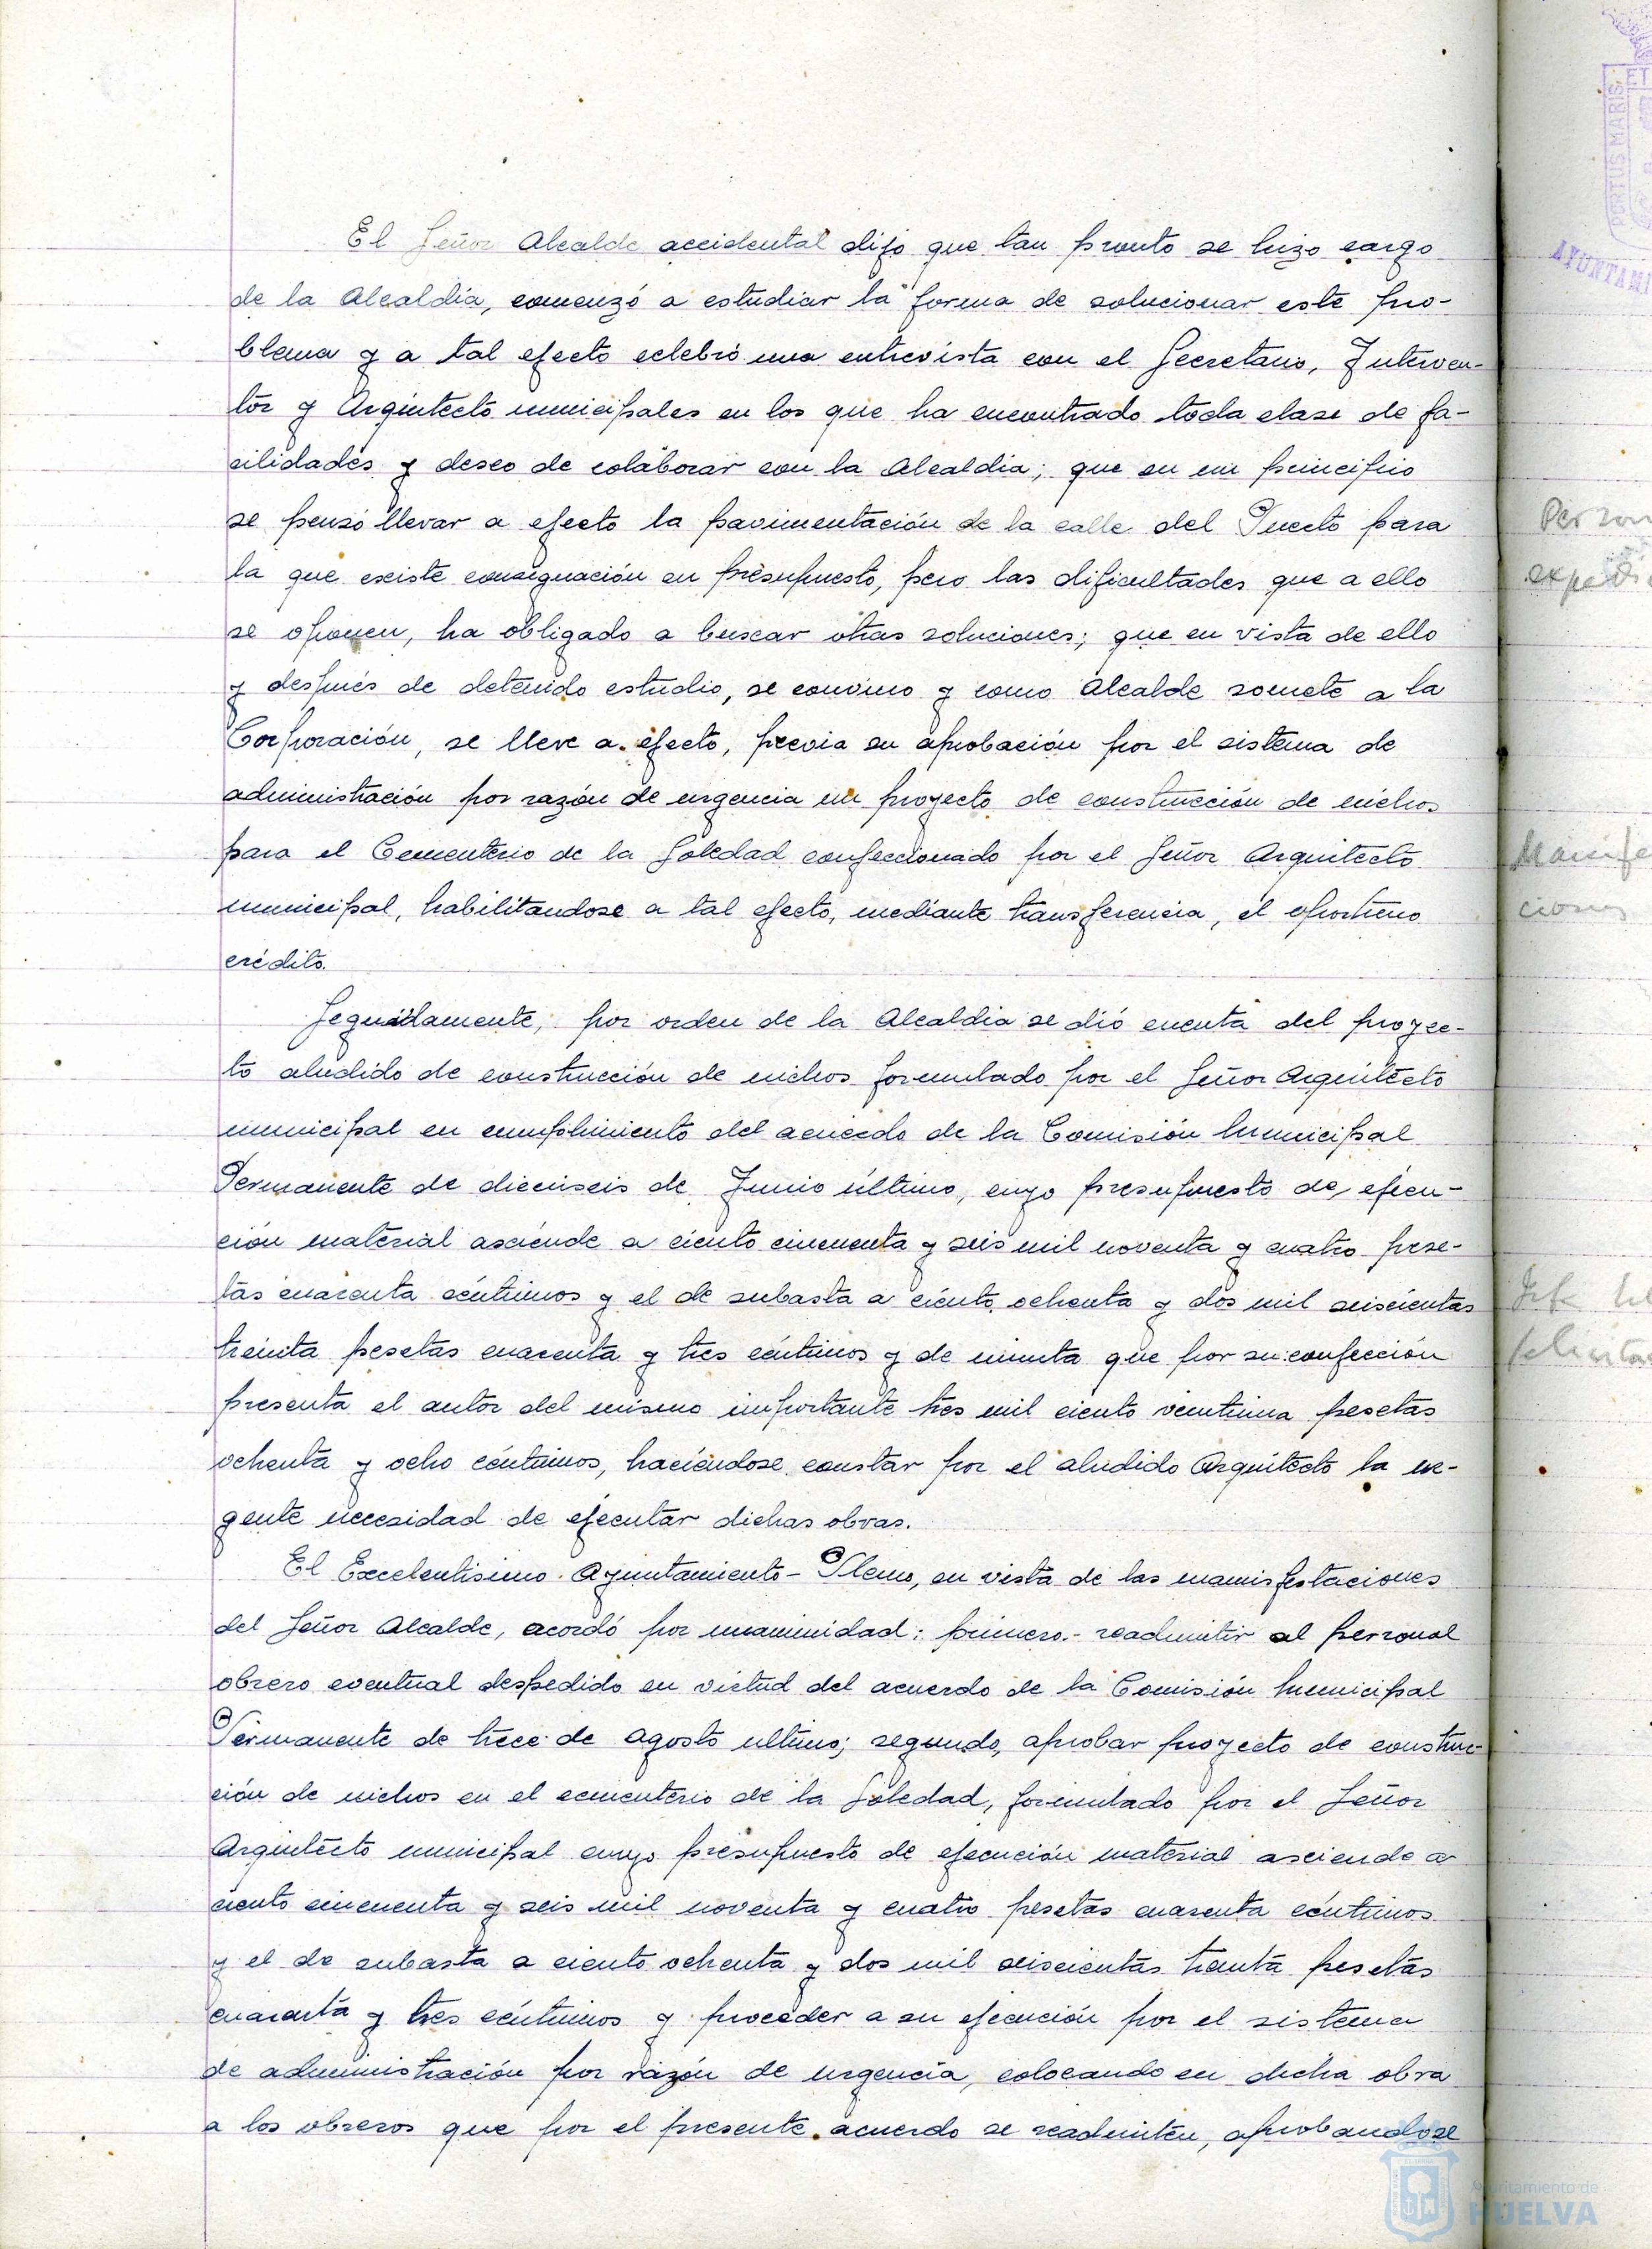 El Señor Alcalde accidental dijo que tan pronto se hizo cargo
de la Alcaldía, comenzó a estudiar la forma de solucionar este pro-
blema y a tal efecto celebró una entrevista con el Secretario, Interven-
tor y Arquitecto municipales en los que ha encontrado toda clase de fa-
cilidades y deseo de colaborar con la Alcaldia; que en un principio
se pensó llevar a efecto la pavimentación de la calle del Puerto para
la que existe consignación en presupuesto, pero las dificultades que a ello
se oponen, ha obligado a buscar otras soluciones; que en vista de ello
y después de detenido estudio, se convino y como Alcalde somete a la
Corporación, se lleve a efecto, previa su aprobación por el sistema de
administración por razón de urgencia un proyecto de construcción de nichos
para el Cementerio de la Soledad confeccionado por el Señor Arquitecto
municipal, habilitandose a tal efecto, mediante transferencia, el oportuno
crédito.
Seguidamente, por orden de la Alcaldia se dió cuenta del proyec-
to aludido de construcción de nichos formulado por el Señor Arquitecto
municipal en cumplimiento del acuerdo de la Comisión Municipal
Permanente de dieciseis de Junio último, cuyo presupuesto de ejecu-
ción material asciende a ciento cincuenta y seis mil noventa y cuatro pese-
tas cuarenta céntimos y el de subasta a ciento ochenta y dos mil seiscientas
treinta pesetas cuarenta y tres céntimos y de minuta que por su confección
presenta el autor del mismo importante tres mil ciento veintiuna pesetas
ochenta y ocho céntimos, haciéndose constar por el aludido Arquitecto la ur-
gente necesidad de ejecutar dichas obras.
El Excelentisimo Ayuntamiento-Pleno, en vista de las manisfestaciones
del Señor Alcalde, acordó por unanimidad: primero.- readmitir al personal
obrero eventual despedido en virtud del acuerdo de la Comisión Municipal
Permanente de trece de agosto ultimo; segundo, aprobar proyecto de construc-
ción de nichos en el cementerio de la Soledad, formulado por el Señor
Arquitecto municipal cuyo presupuesto de ejecución material asciende a
ciento cincuenta y seis mil noventa y cuatro pesetas cuarenta céntimos
y el de subasta a ciento ochenta y dos mil seiscientas treinta pesetas
cuarenta y tres céntimos y proceder a su ejecución por el sistema
de administración por razón de urgencia, colocando en dicha obra
a los obreros que por el presente acuerdo se readmiten, aprobandose
PORTUS MARIS ET
AYUNTAMI
Person
expedie
Manife
ciones
Ayuntamiento de
HUELVA